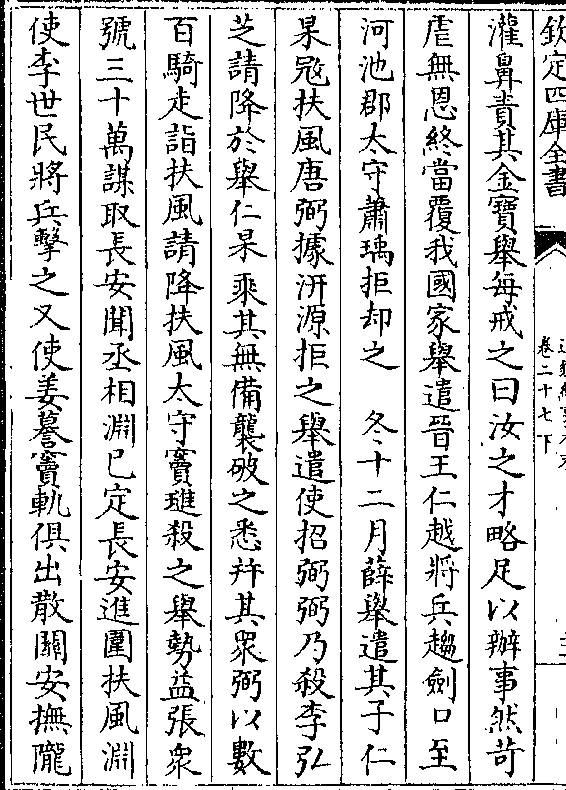 欽定四庫全書
卷二十七下
灌鼻責其金寶舉每戒之曰汝之才略足以辦事然苛
虐無恩終當覆我國家舉遣晉王仁越將兵趨劍口至
河池郡太守蕭瑀拒却之　冬十二月薛舉遣其子仁
杲宼扶風唐弼據汧源拒之舉遣使招弼弼乃殺李弘
芝請降於舉仁杲乘其無備襲破之悉并其衆弼以數
百騎走詣扶風請降扶風太守竇璡殺之舉勢益張衆
號三十萬謀取長安聞丞相淵已定長安進圍扶風淵
使李世民將兵擊之又使姜謩竇軌俱出散關安撫隴